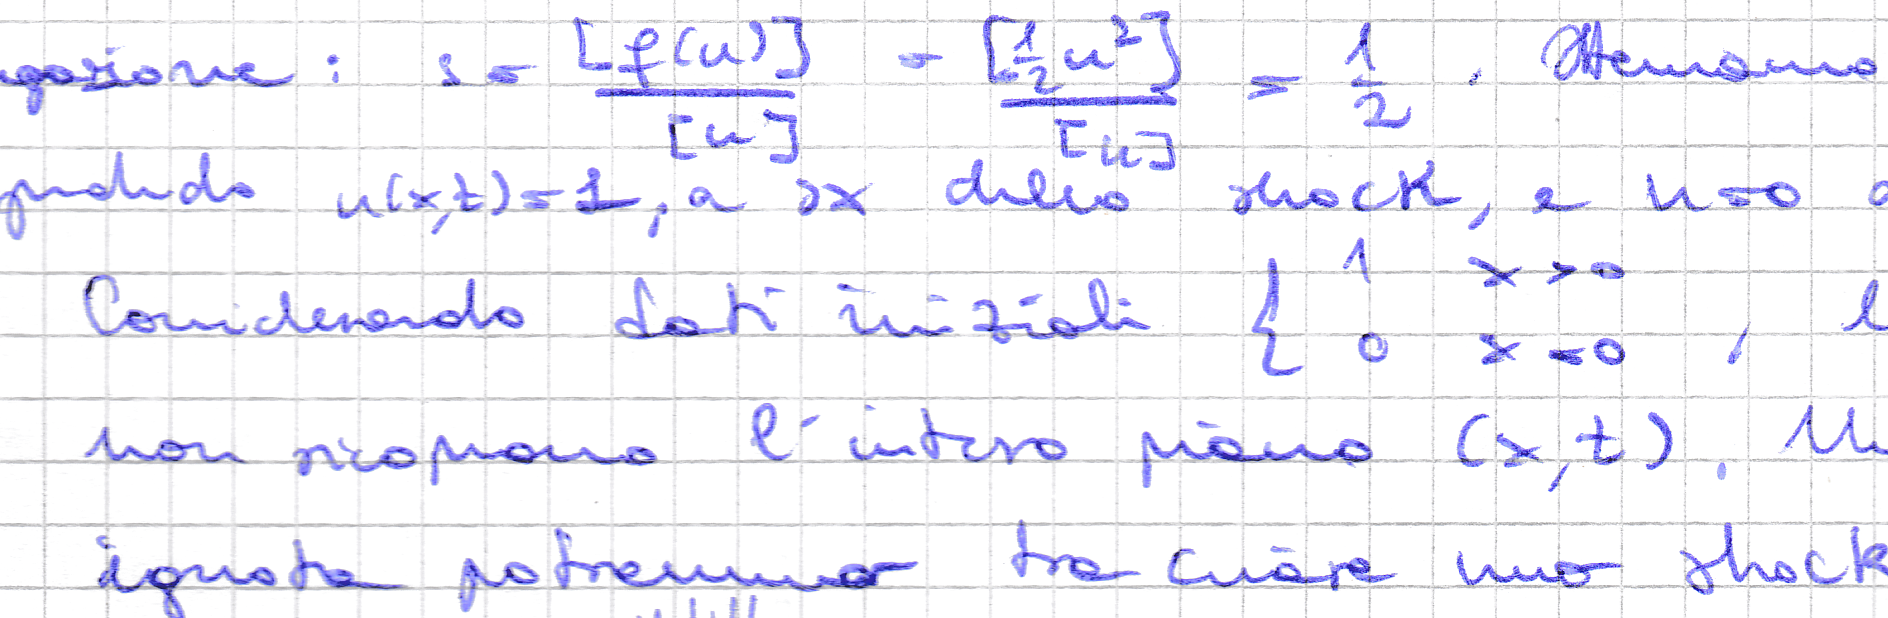 gazione : s = [f(u)]/[u] = [1/2 u²]/[u] = 1/2 . Otteniamo
u(x,t)=1, a sx dello shock, e u=0
Considerando dati iniziali { 1 x>0 ; 0 x=0 ,
non ricoprono l'intero piano (x,t).
ignota potremmo tracciare uno shock